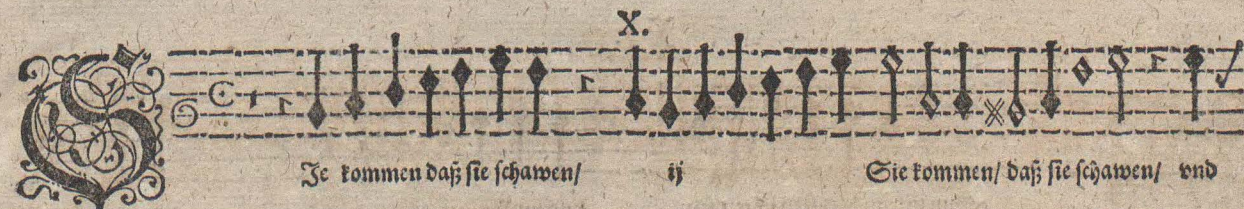 X.
SJe kommen daß sie schawen/ ij Sie kommen/ daß sie schawen/ vnd